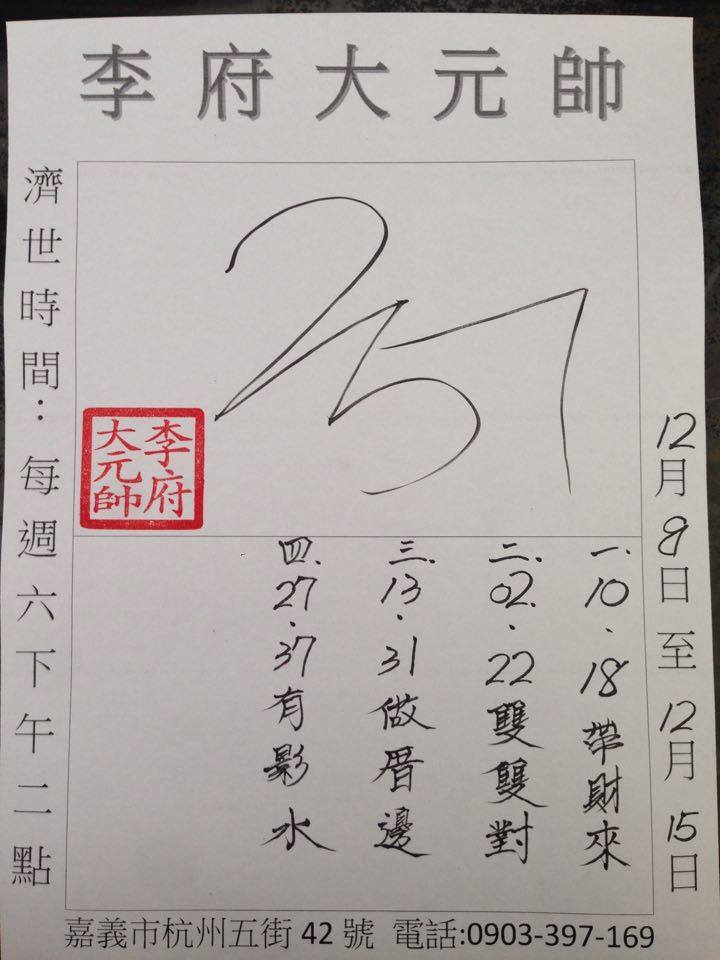 李府大元帥
濟世時間：每週六下午二點
257
李府
大元帥
12月9日至12月15日
一.10.18帶財來
二.02.22雙雙對
三.13.31做厝邊
四.27.37有影水
嘉義市杭州五街 42 號 電話:0903-397-169